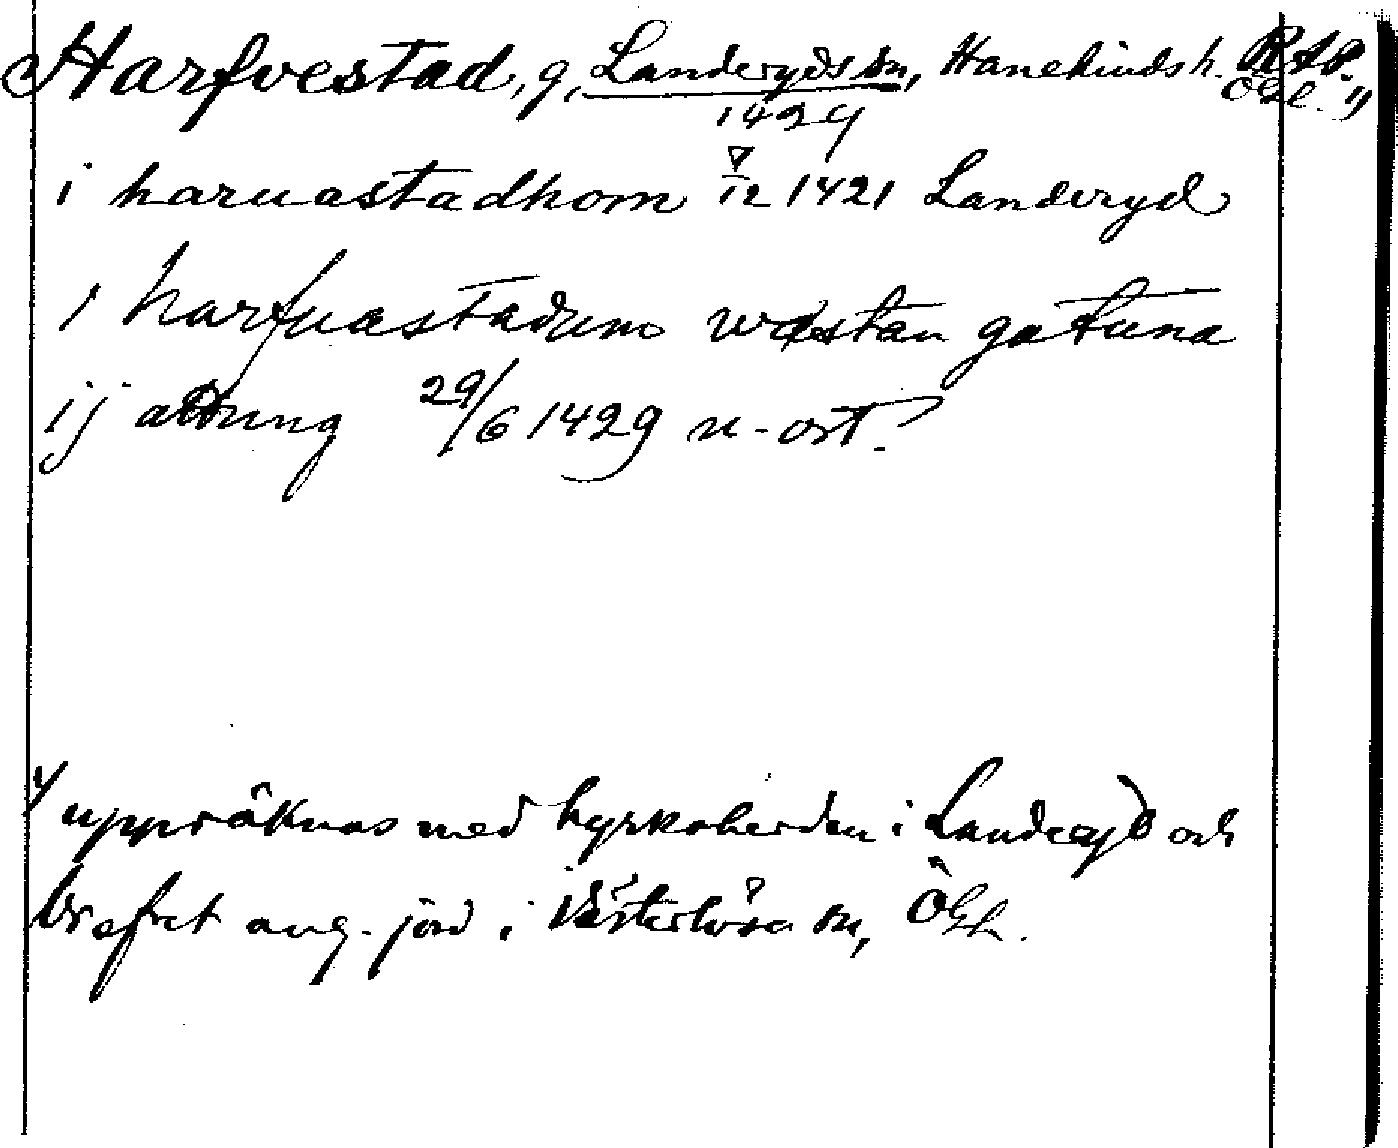 Harfvestad, g, Landeryds sn, Hanekinds h. RAP.
1429 ÖGL. 1)
i haruastadhom 7/12 1421 Landeryd
i harfuastadum wæstan gatuna
ij attung 29/6 1429 u-ort.
1/ uppräknas med kyrkoherden i Landeryd och
brefvet ang. jord i Västerlösa sn, ÖGL.